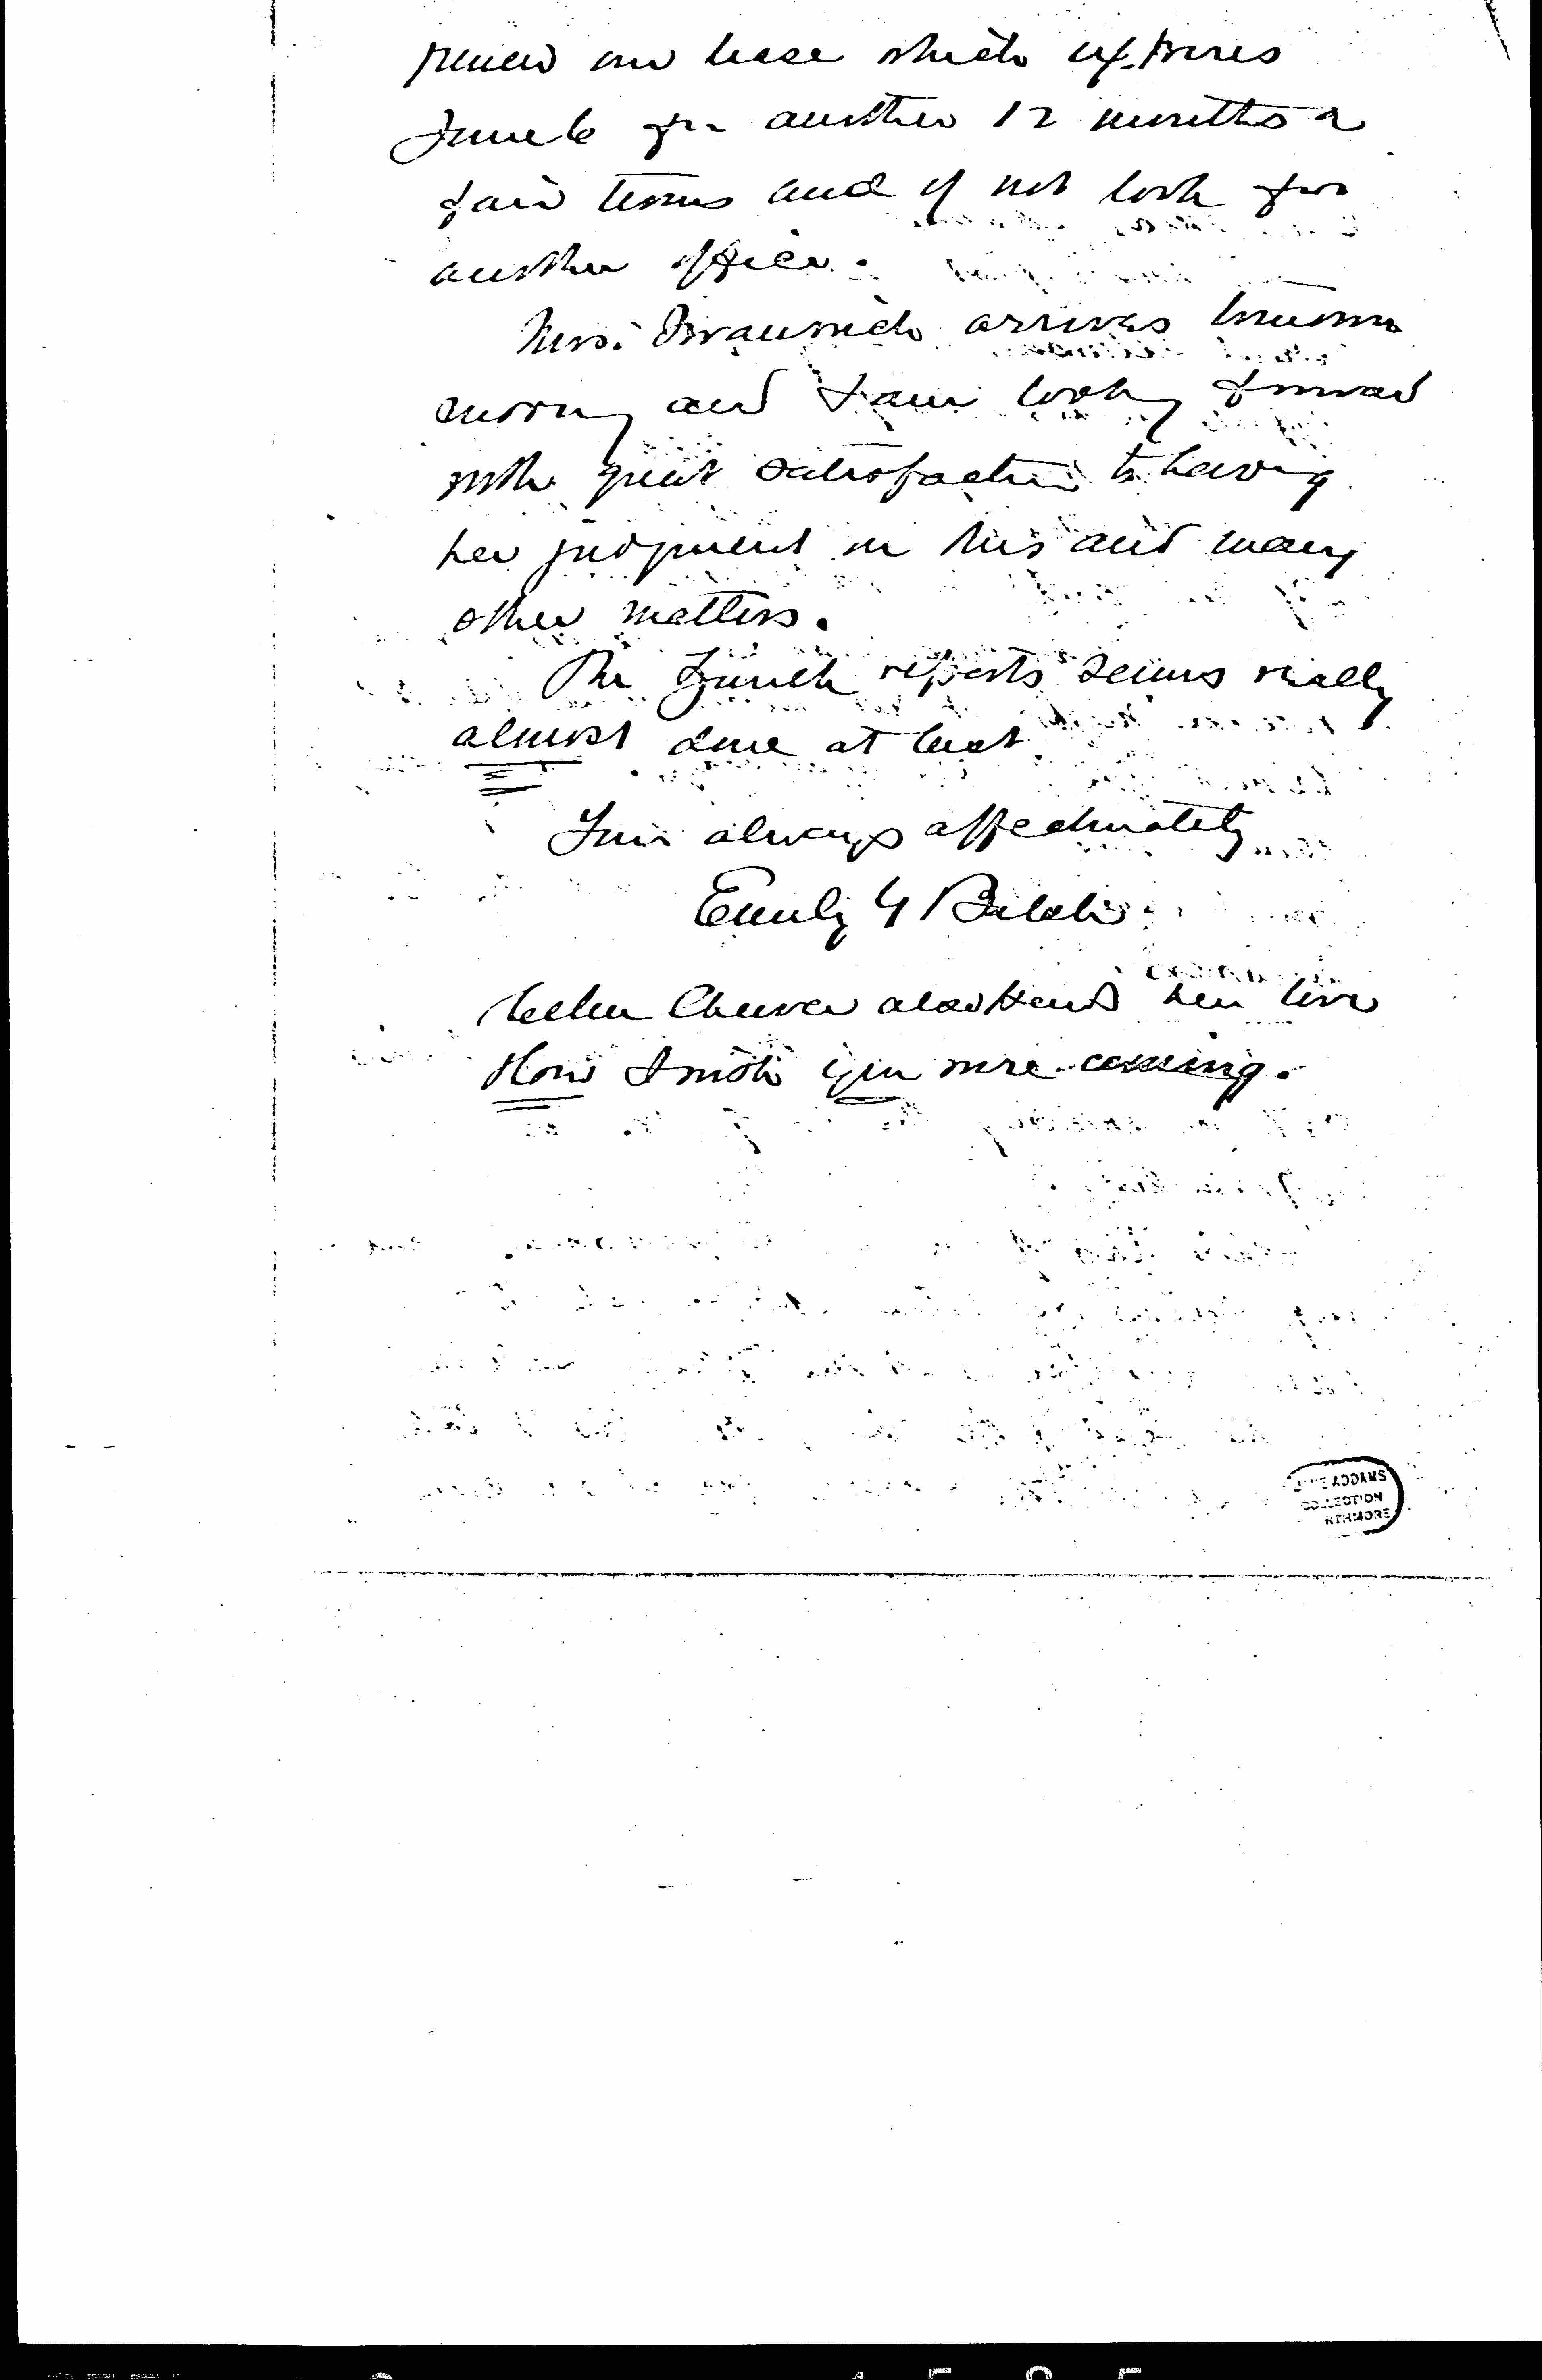 renew our lease which expires
June 6 for another 12 months on
fair terms and if not look for
another office.
Mrs. arrives tomorrow
morning and I am looking forward
with great satisfaction to having
her judgment in this and many
other matters.
The Zurich reports seems really
almost done at last.
Yours always affectionately
Emily G Balch
Helen Cheever also sends her love
How I wish you were coming.
JANE ADDAMS
COLLECTION
RTHMORE
1 5 8 5